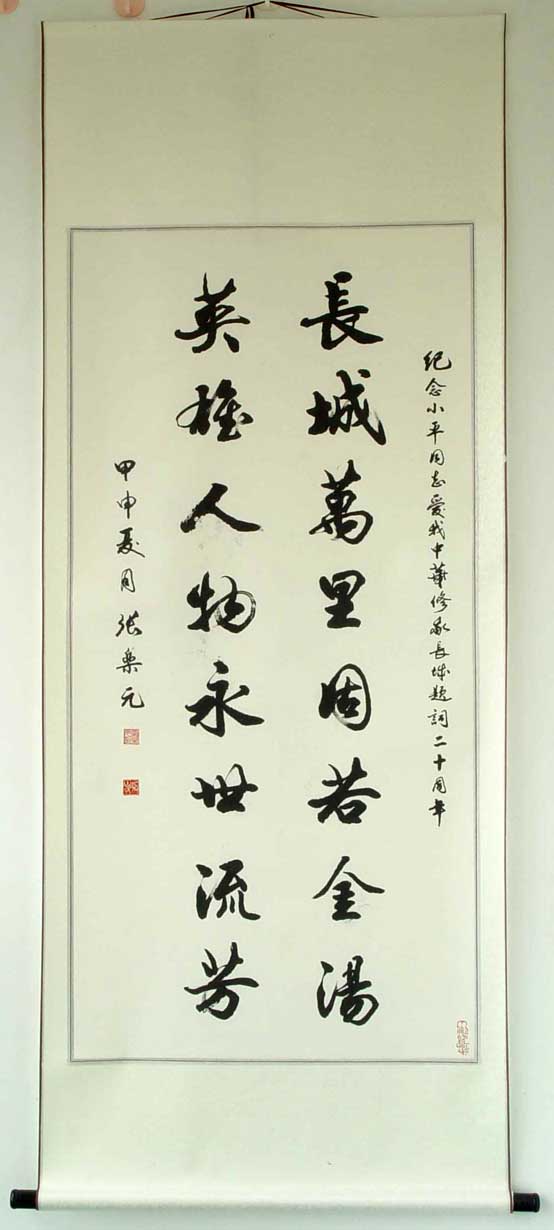 纪念小平同志爱我中華修我長城题詞二十周年
長城萬里固若金湯
英雄人物永世流芳
甲申夏月 张樂元